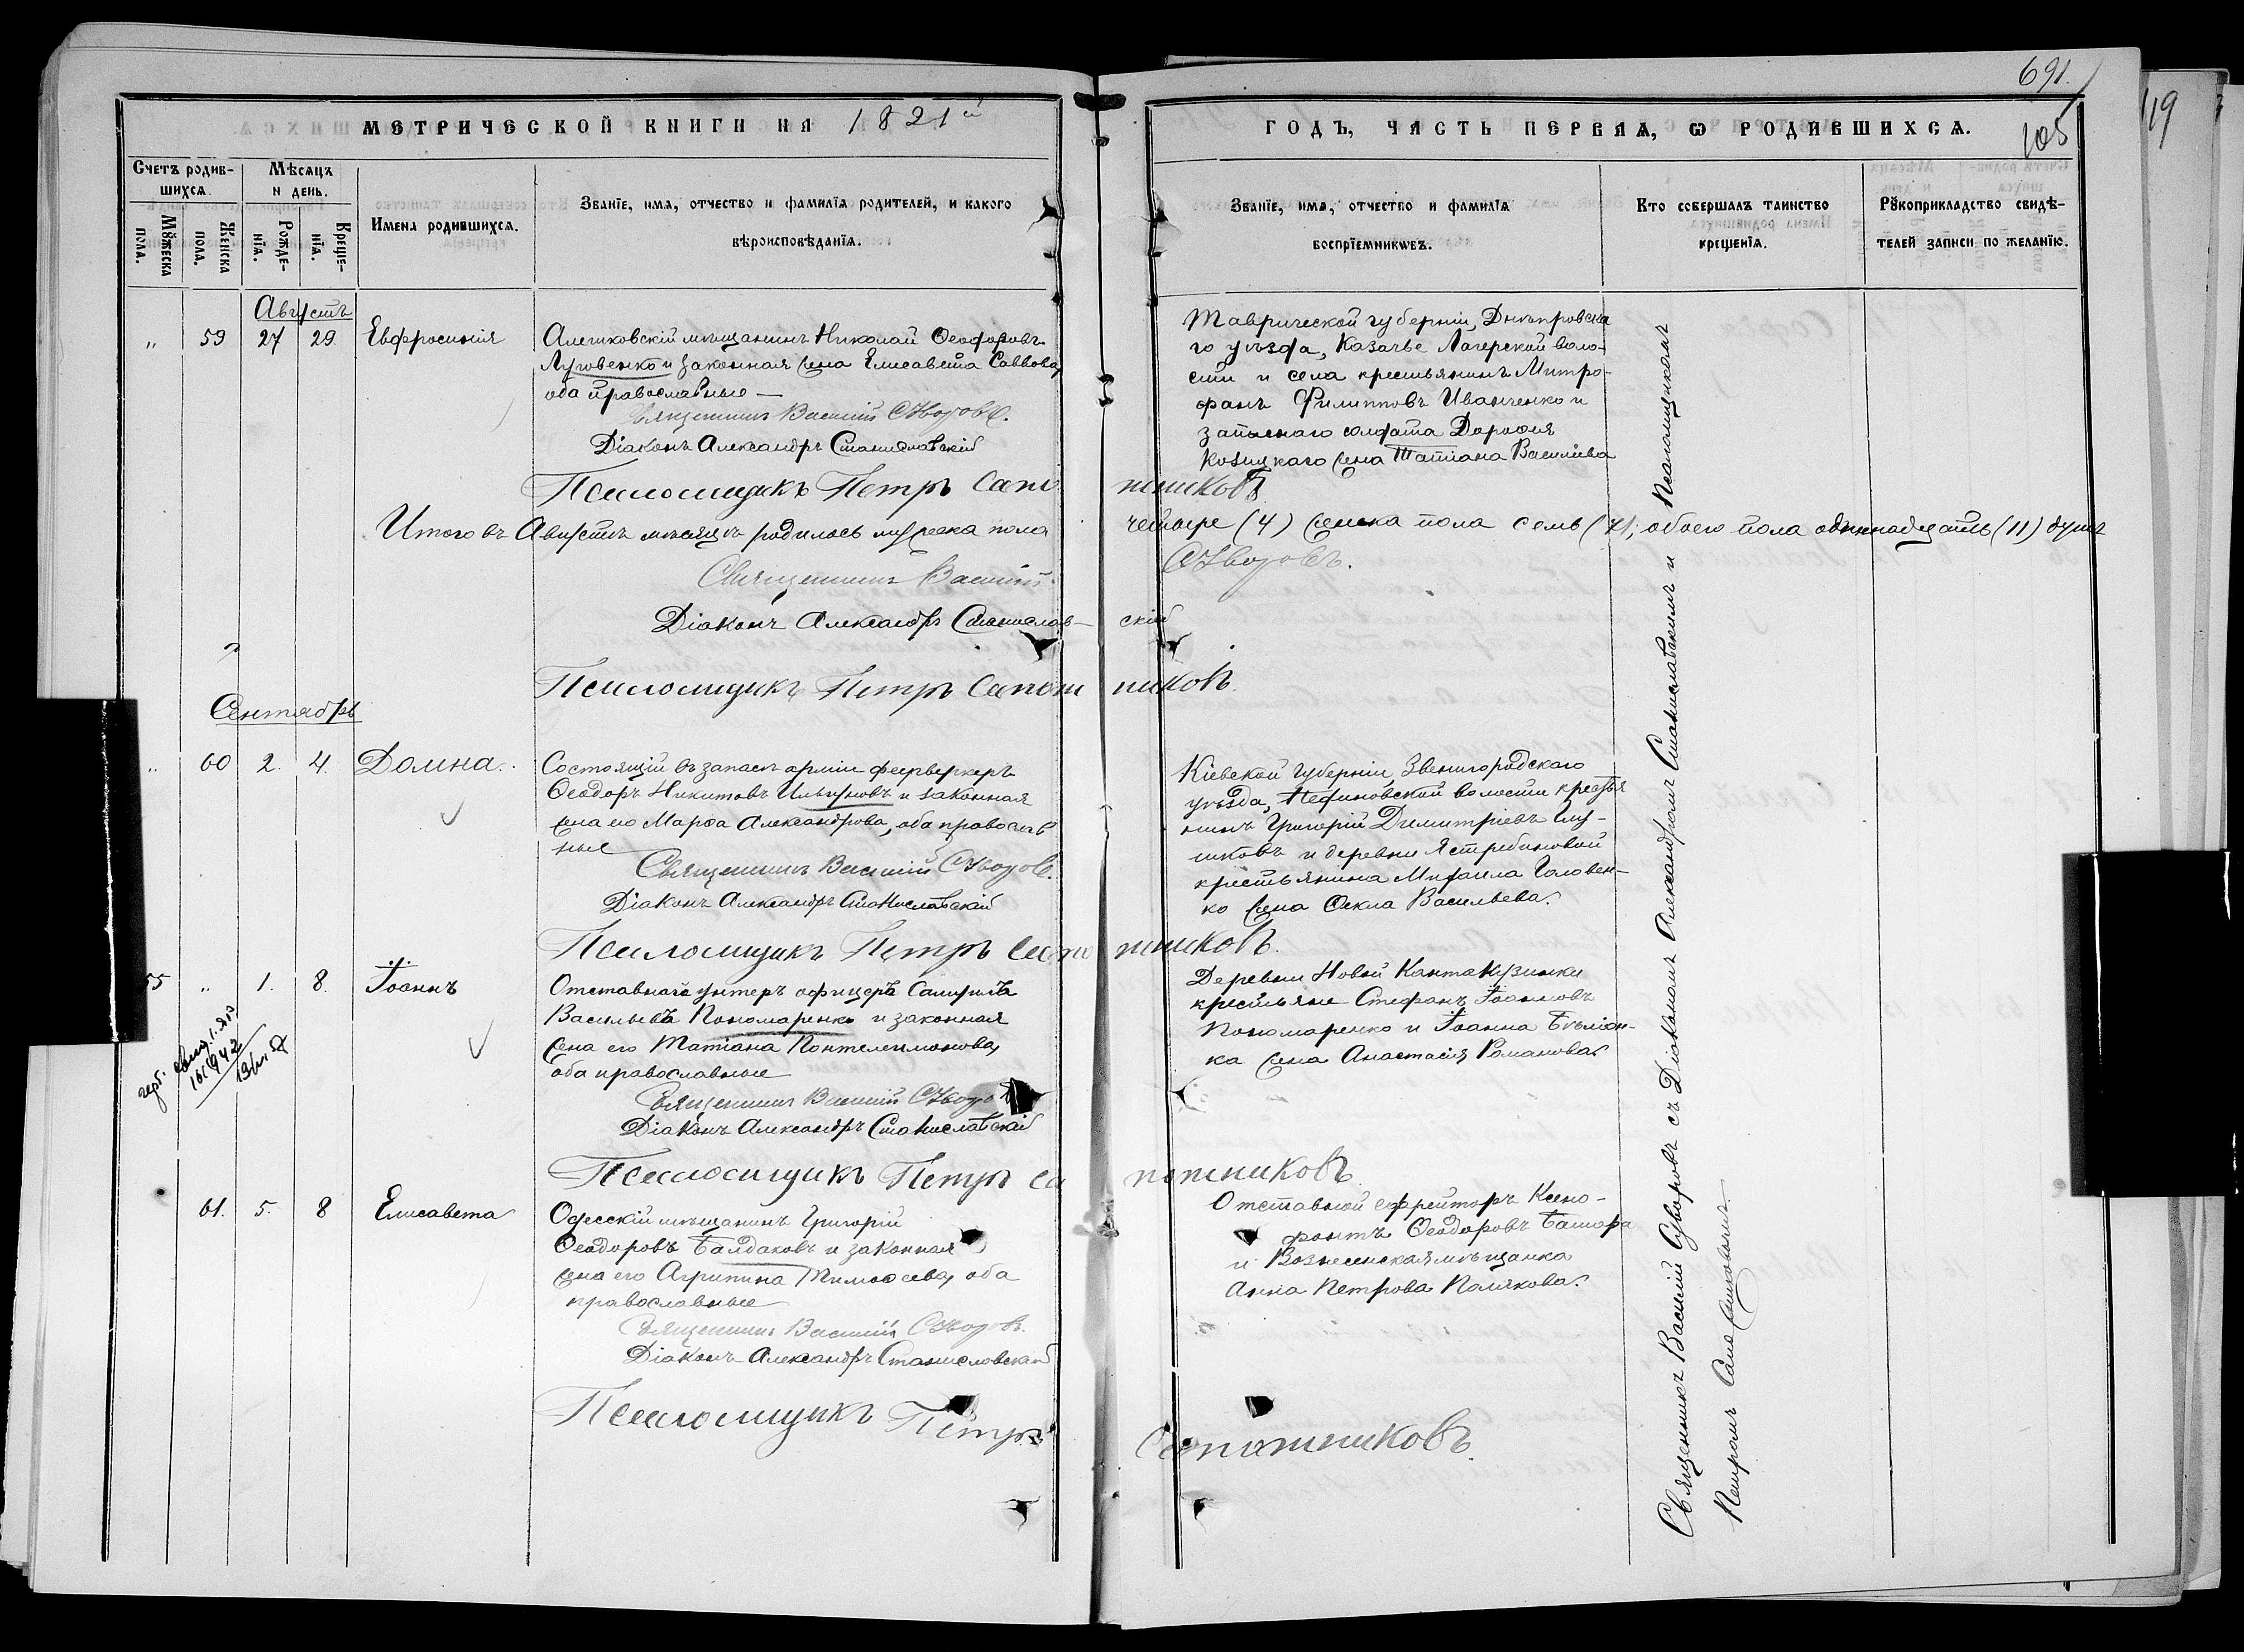 691.
119
105
МЕТРИЧЕСКОЙ КНИГИ НА 1821й
ГОДЪ, ЧАСТЬ ПЕРВАЯ, Ѡ РОДИВШИХСЯ.
Счетъ родив-
шихся
Мѣсяцъ
и день.
Мꙋжеска
пола.
Женска
пола.
Рожде-
нїя.
Креще-
нїя.
Имена родившихся.
Званїе, имя, отчество и фамилїя родителей, и какого
вѣроисповѣданїя.
Званїе, имя, отчество и фамилїя
воспрїемникѡвъ.
Кто совершалъ таинство
крещенїя.
Рꙋкоприкладство свидѣ-
телей записи по желанїю.
Августъ
„ 59 27 29. Евфросинія
Алешковскій мѣщанинъ Николай Ѳеодоровъ
Луговенко и законная жена Елисавета Саввова,
оба православные —
Священникъ Василій Суворовъ.
Діаконъ Александръ Станиславскій
Псаломщикъ Петръ Сапожниковъ
Таврической губерніи, Днѣпровска
го уѣзда, Казачье Лагерской воло-
сти и села крестьянинъ Митро-
фанъ Филипповъ Иванченко и
запаснаго солдата Дороѳея
Козицкаго жена Татіана Василіева
Итого въ Августѣ мѣсяцѣ родилось мужеска пола четыре (4) женска пола семь (7); обоего пола одиннадцать (11) душъ
Священникъ Василій Суворовъ.
Діаконъ Александръ Станиславскій
Псаломщикъ Петръ Сапожниковъ.
Сентябрь
„ 60 2. 4. Домна.
Состоящій въ запасѣ арміи фейерверкеръ
Ѳеодоръ Никитовъ и законная
жена его Марѳа Александрова, оба православ
ные
Священникъ Василій Суворовъ.
Діаконъ Александръ Станиславскій
Псаломщикъ Петръ Сапожниковъ.
Кіевской губерніи, Звенигородскаго
уѣзда, волости крестья
нинъ Григорій Димитріевъ Глу-
шковъ и деревни Ястребиновой
крестьянина Михаила Головен-
ко жена Ѳекла Васильева.
55 „ 1. 8. Іоаннъ
Отставнаго унтеръ офицеръ
Васильевъ Пономаренко и законная
жена его Татіана Пантелеимонова,
оба православные
Священникъ Василій Суворовъ
Діаконъ Александръ Станиславскій
Псаломщикъ Петръ Сапожниковъ
Деревни Новой Кантакузинки
крестьяне Стефанъ Іоанновъ
Пономаренко и Іоанна
жена Анастасія Романова.
61. 5. 8 Елисавета
Одесскій мѣщанинъ Григорій
Ѳеодоровъ Балдаковъ и законная
жена его Агрипина Тимоѳеева, оба
православные
Священникъ Василій Суворовъ.
Діаконъ Александръ Станиславскій
Псаломщикъ Петръ Сапожниковъ.
Отставной ефрейторъ Ксено-
фонтъ Ѳеодоровъ
и Вознесенская мѣщанка
Анна Петрова Полякова.
Священникъ Василій Суворовъ съ Діакономъ Александромъ Станиславскимъ и Псаломщикомъ
Петромъ Сапожниковымъ.